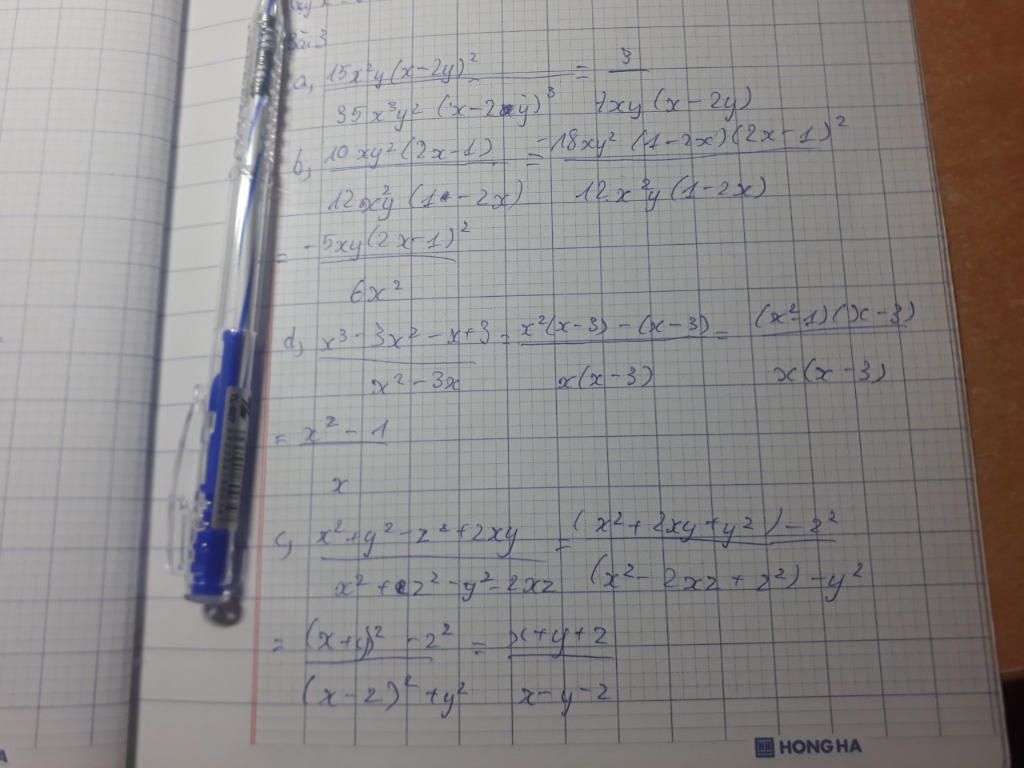 a, 15x²y(x-2y)² / 35x³y² (x-2y)³ = 3 / 7xy (x-2y)
b, 10xy²(2x-1) / 12x²y (1-2x) = -18xy² (1-2x)(2x-1)² / 12x²y (1-2x)
= -5xy(2x-1)² / 6x²
d, x³-3x²-x+3 / x²-3x = x²(x-3)-(x-3) / x(x-3) = (x²-1)(x-3) / x(x-3)
= x²-1 / x
c, x²+y²-z²+2xy / x²+z²-y²-2xz = (x²+2xy+y²)-z² / (x²-2xz+z²)-y²
= (x+y)²-z² / (x-z)²+y² = x+y+z / x-y-z
HONG HA